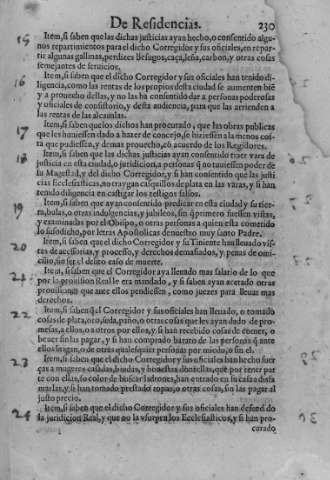 De Residencias. 230
15 Item, si saben que las dichas justicias ayan hecho, o consentido algu-
nos repartimientos para el dicho Corregidor y sus oficiales, en repar-
tir algunas gallinas, perdizes Besugos, caça, leña, carbon, y otras cosas
semejantes de seruicios.
16 Item, si saben que el dicho Corregidor y sus oficiales han tenido di-
ligencia, como las rentas de los propios desta ciudad se aumenten bié
y a prouecho dellas, y no las ha consentido dar a personas poderosas
y oficiales de consistorio, y desta audiencia, para que las arrienden a
las rentas de las alcaualas.
17 Item, si saben que los dichos han procurado, que las obras publicas
que les houiessen dado a hazer de concejo, se hiziessen a la menos cos-
ta que pudiessen, y demas prouecho, có acuerdo de los Regidores.
18 Item, si saben que las dichas justicias ayan consentido traer vara de
justicia en esta ciudad, o juridicion, a personas q̃ no tuuiessen poder de
su Magestad, y del dicho Corregidor, y si han consentido que las justi
cias Ecclesiasticas, no traygan casquillos de plata en las varas, y si han
tenido diligencia en castigar los testigos falsos.
19 Item, si saben que ayan consentido predicar en esta ciudad y su tier-
ra, bulas, o otras indulgencias, y jubileos, sin q̃ primero fuessen vistas,
y examinadas por el Obispo, o otras personas a quien esta cometido
lo susodicho, por letras Apostolicas de nuestro muy santo Padre.
20 Item, si saben que el dicho Corregidor y su Tiniente han lleuado vis-
tas de accessorias, y processo, y derechos demasiados, y penas de omi-
cillio, sin seguirse caso de muerte.
21 Item, si saben que el Corregidor aya lleuado mas salario de lo que
por la prouision Real le era mandado, y si saben aya acetado otras
prouisiones que ante ellos pendiessen, como juezes para lleuar mas
derechos.
22 Item, si saben q̃ el Corregidor y sus oficiales han lleuado, o tomado
cosas de plata, oro, seda, paño, o otras cosas que les ayan dado de pro-
messas, a ellos, o a otros por ellos, y si han recebido cosas de comer, o
beuer sin las pagar, y si han comprado barato de las personas q̃ ante
ellos siguen, o de otras qualesquier personas por miedo, o sin el.
23 Item, si saben que el dicho Corregidor y sus oficiales han hecho fuer
ças a mugeres casadas, biudas, y honestas donzellas, que por tener par
te con ellas, so color de buscar ladrones, han entrado en su casa a disfa
marlas, y si han tomado prestado ropas, o otras cosas, sin las pagar al
justo precio.
24 Item, si saben que el dicho Corregidor y sus oficiales han defendido
la juridicion Real, y que no la vsurpen los Ecclesiasticos, y si han pro-
curado